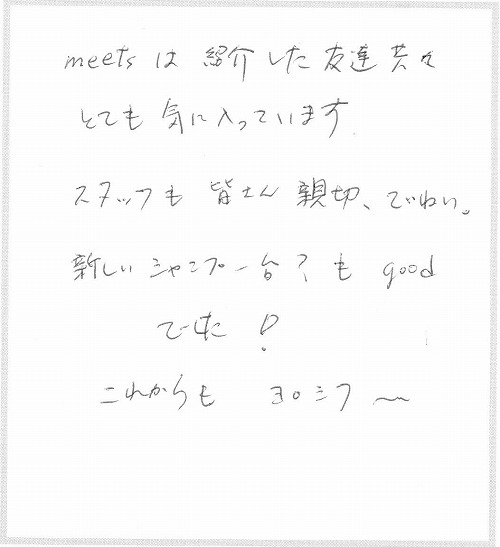 meetsは 紹介した友達共々
とても気に入っています
スタッフも 皆さん親切、ていねい。
新しいシャンプー台?も good
でした!
これからも ヨロシク〜